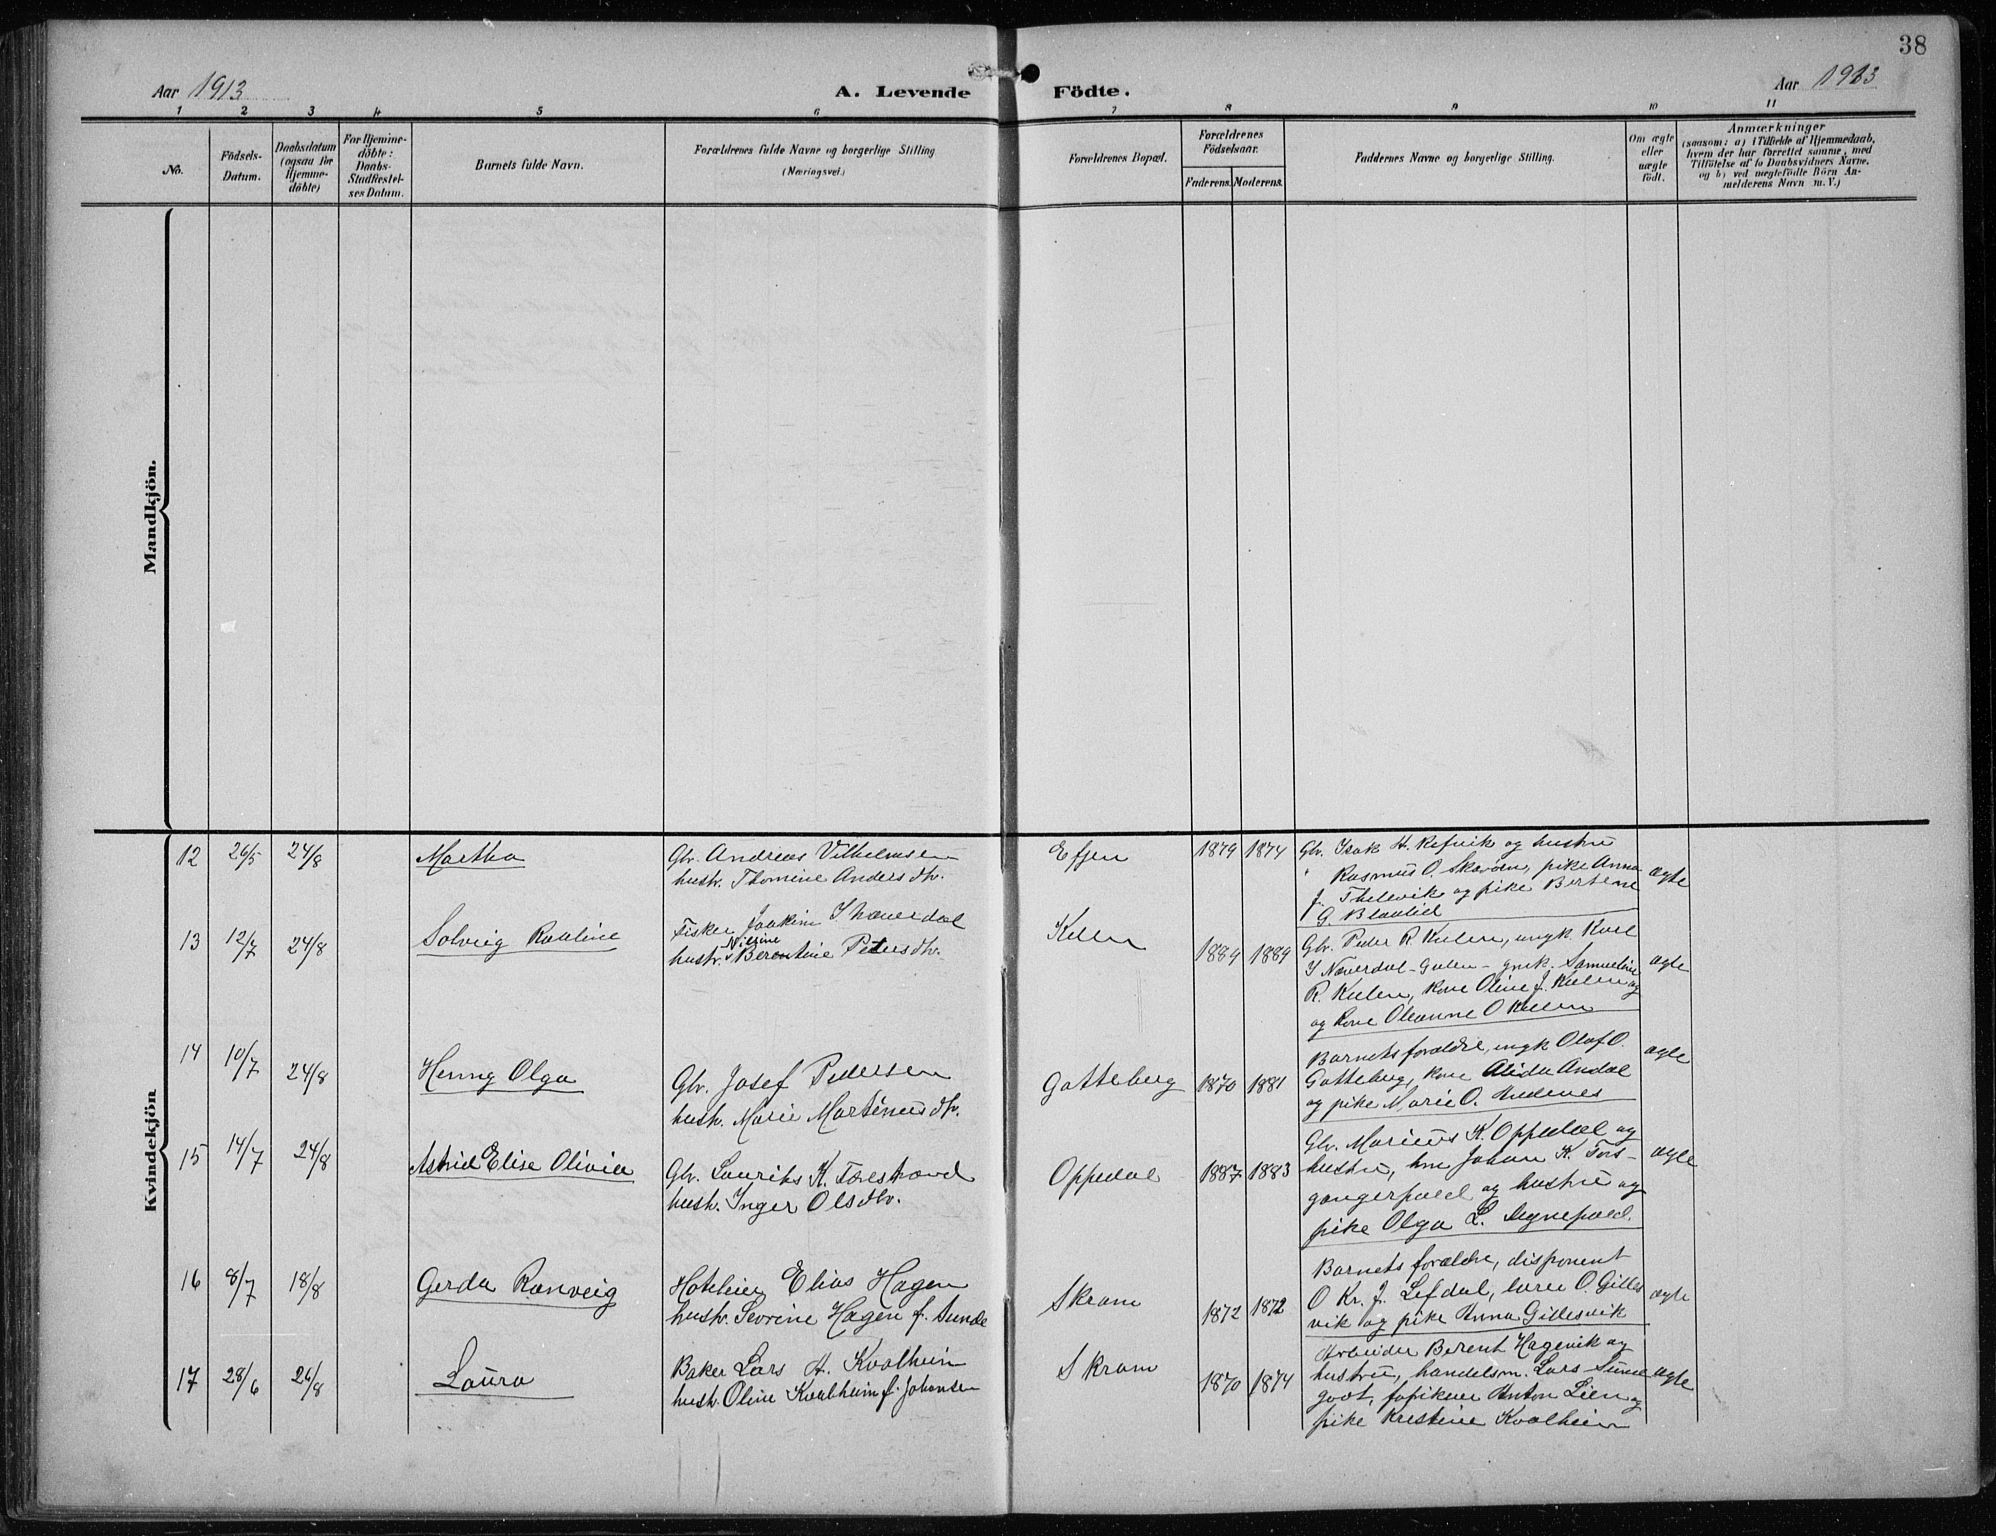 38
Aar 1913 A. Levende Födte. Aar 1913
1 2 3 4 5 6 7 8 9 10 11
No.
Födsels-
Datum.
Daabsdatum
(ogsaa for
Hjemme-
döbte)
For Hjemme-
döbte:
Daabs-
Stadfæstel-
ses Datum.
Barnets fulde Navn.
Forældrenes fulde Navne og borgerlige Stilling
(Næringsvei.)
Forældrenes Bopæl.
Forældrenes
Födselsaar.
Faderens. Moderens.
Faddernes Navne og borgerlige Stilling.
Om ægte
eller
uægte
födt.
Anmærkninger
(saasom: a) i Tilfælde af Hjemmedaab,
hvem der har forrettet samme, med
Tilföielse af to Daabsvidners Navne.
og b) ved uægtefödte Börn An-
melderens Navn m. V.)
Mandkjön.
Kvindekjön
12 26/5 24/8 Martha
Gbr. Andreas Vilhelmsen
hustr. Thomine Andersdtr.
Efjen 1879 1874
Gbr. Isak H. Refvik og hustru
Rasmus O. Skavöen, pike Anna
J. Thelevik og pike Bertene
G. Blaalid
ægte
13 12/7 24/8 Solveig Pauline
Fisker Joakim I Næverdal
hustr. Nilsine Berentine Petersdtr.
Kelen 1889 1889
Gbr. Peder R. Kulen, ungk Karl
I Næverdal - Gulen - gmk. Samueline
R. Kulen, kone Oline J. Kulen og
og kone Oleanne O Kelen
ægte
14 10/7 24/8 Henny Olga
Gbr. Josef Pedersen
hustr. Marie Martinusdtr.
Gotteberg 1870 1881
Barnets forældre, ungk Olaf O.
Gotteberg, kone Alida Andal
og pike Marie O. Indenes
ægte
15 14/7 24/8 Astrid Elise Olivia
Gbr. Lauritz K. Förestrand
hustr. Inger Olsdtr.
Oppedal 1887 1883
Gbr. Marius K. Oppedal og
hustru, hm Johan K. Förs-
gangerpold og hustru og
pike Olga L. Degnepold.
ægte
16 8/7 18/8 Gerda Ranveig
Hoteleier Elias Hagen
hustr. Sevrine Hagen f. Sunde
Skram 1872 1872
Barnets forældre, disponent
O Kr. J. Lefdal, lærer O. Gilles
vik og pike Anna Gillesvik
ægte
17 28/6 26/8 Laura
Baker Lars A. Kvalheim
hustr. Oline Kvalheim f. Johansen
Skram 1870 1874
Arbeider Berent Hagevik og
hustru, handelsm. Lars Sunne
godt, fopikner Anton Lien og
pike Kristine Kvalheim
ægte